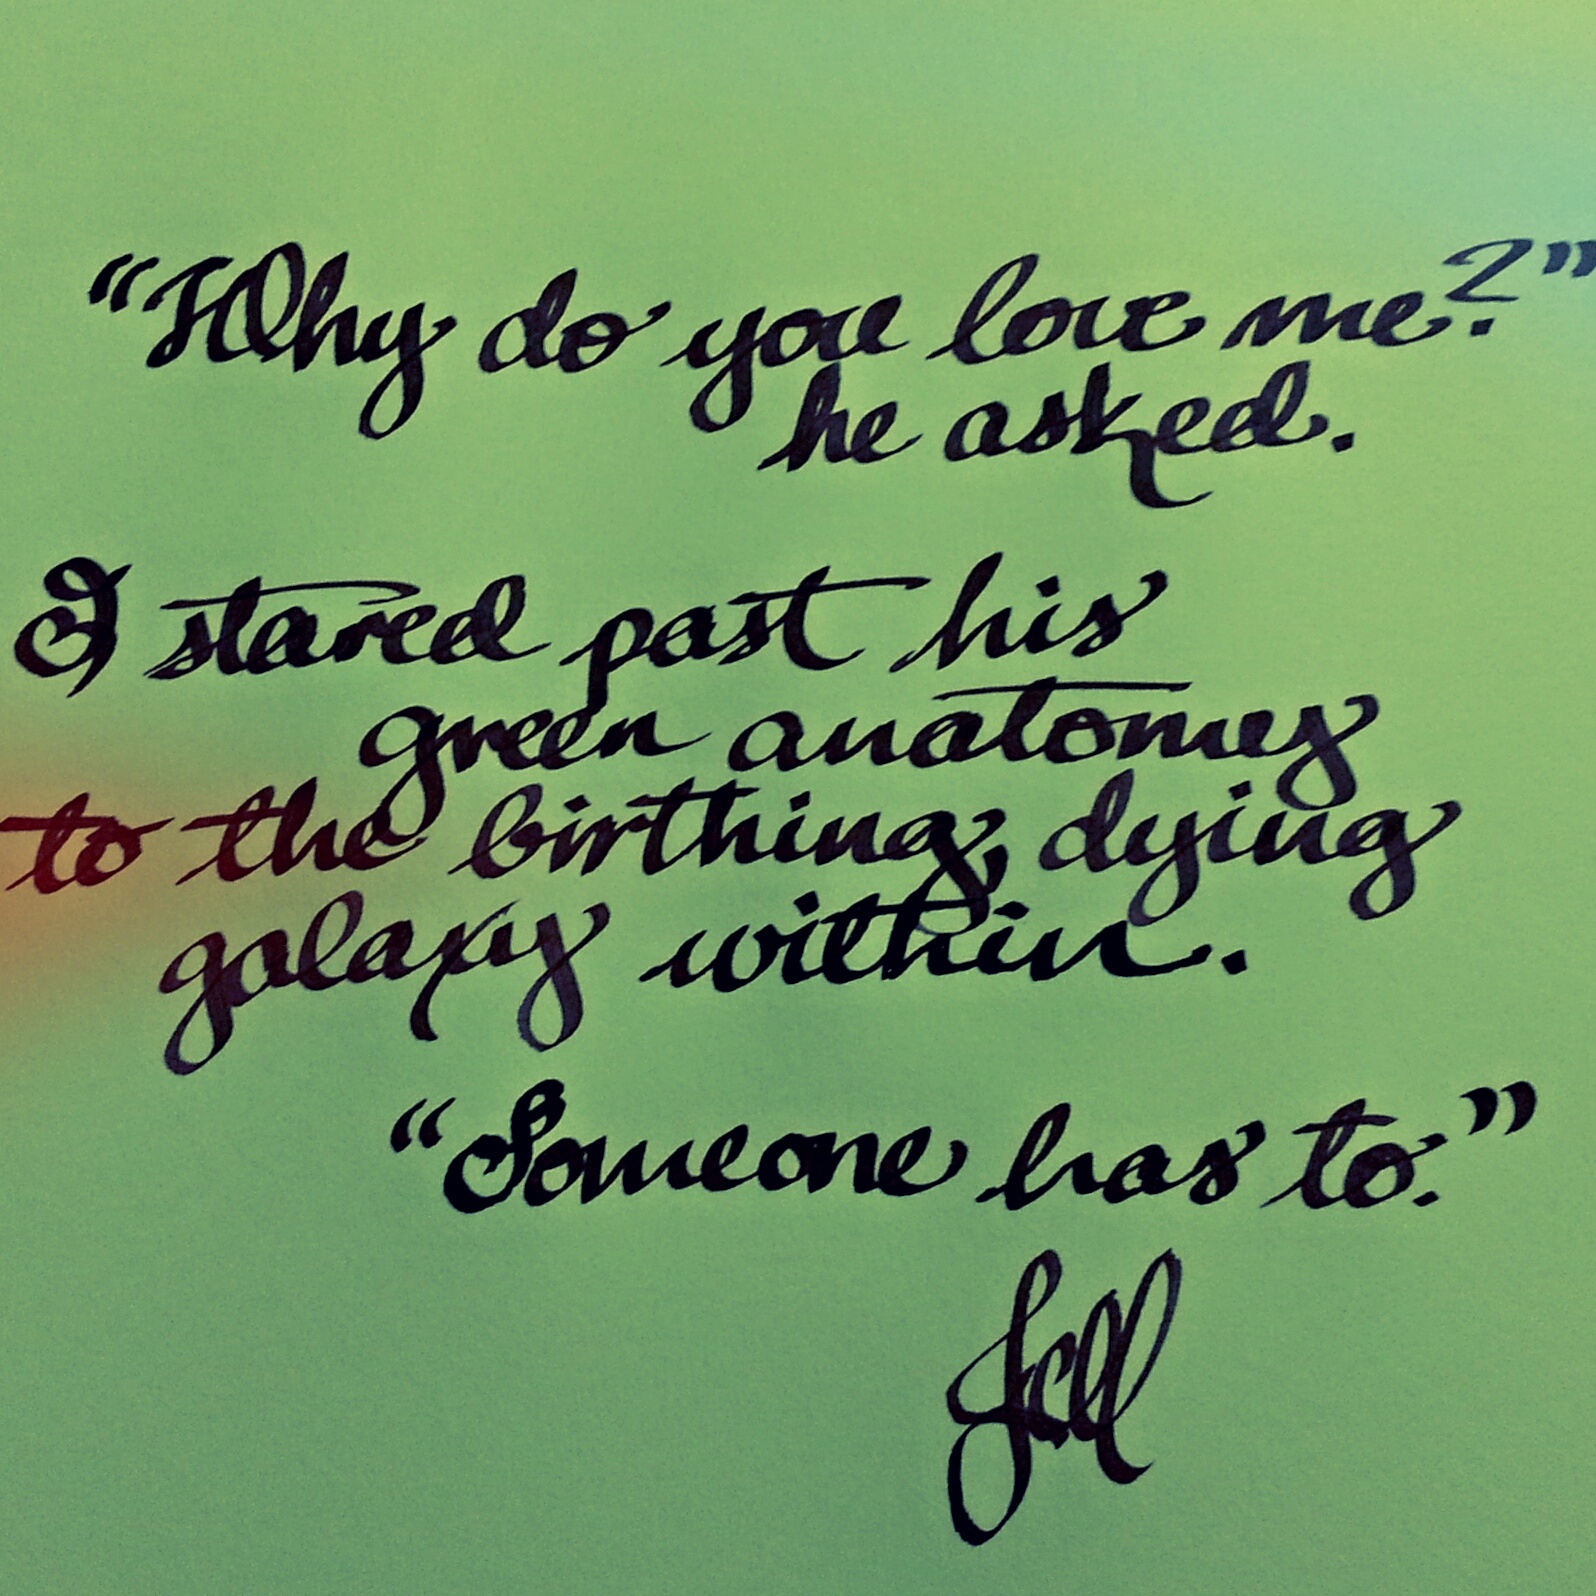 "Why do you love me?"
he asked.
I stared past his
green anatomy
to the birthing, dying
galaxy within.
"Someone has to."